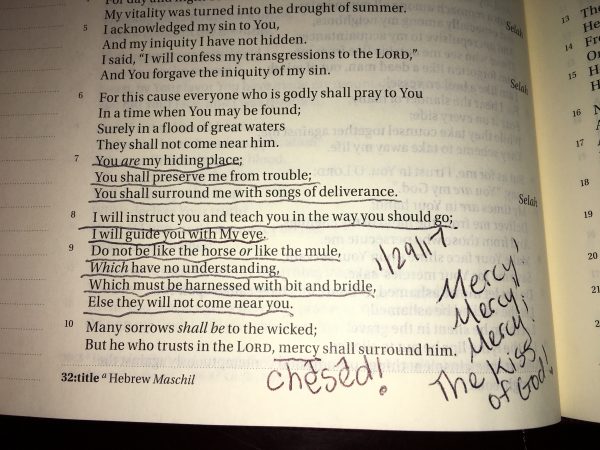 My vitality was turned into the drought of summer.
Selah
5 I acknowledged my sin to You,
And my iniquity I have not hidden.
I said, “I will confess my transgressions to the LORD,”
And You forgave the iniquity of my sin.
Selah
6 For this cause everyone who is godly shall pray to You
In a time when You may be found;
Surely in a flood of great waters
They shall not come near him.
7 You are my hiding place;
You shall preserve me from trouble;
You shall surround me with songs of deliverance.
Selah
8 I will instruct you and teach you in the way you should go;
I will guide you with My eye.
9 Do not be like the horse or like the mule,
Which have no understanding,
Which must be harnessed with bit and bridle,
Else they will not come near you.
10 Many sorrows shall be to the wicked;
But he who trusts in the LORD, mercy shall surround him.
32:title a Hebrew Maschil
chesed!
1/29/17
Mercy!
Mercy!
Mercy!
The Kiss
of God!
13
14
15
16
17
18
19
20